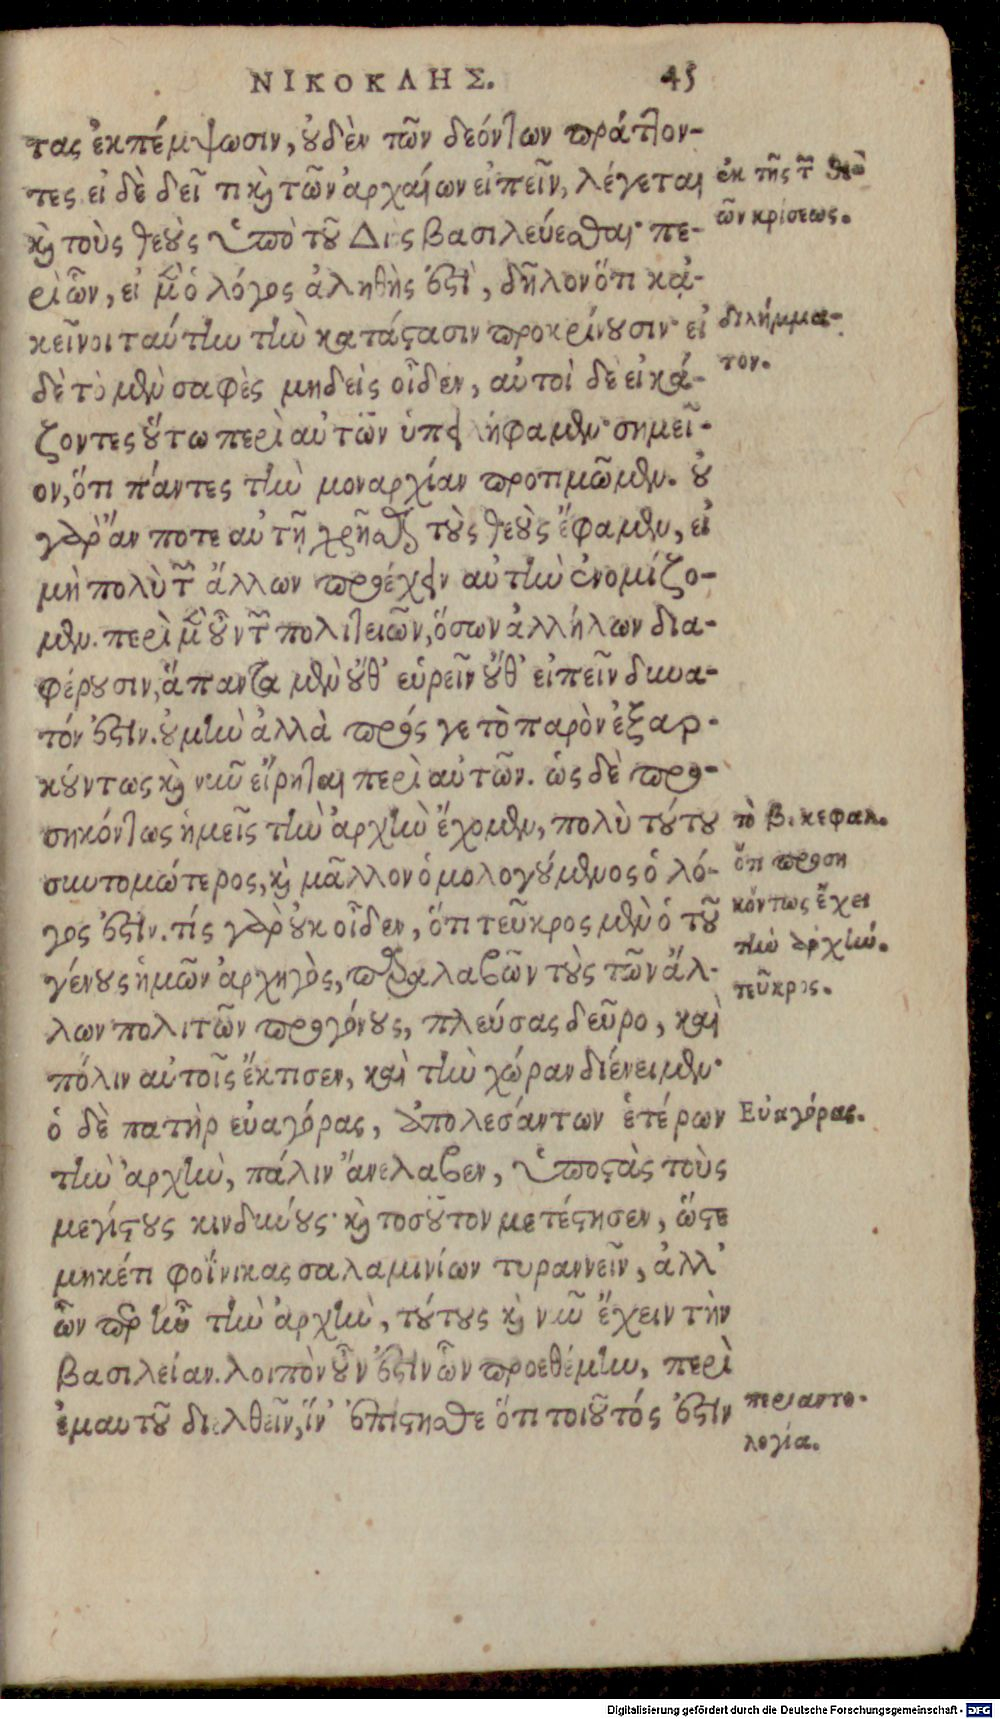 ΝΙΚΟΚΛΗΣ. 45
τας ἐκπέμψωσιν, οὐδὲν τῶν δεόντων πράττον-
τες εἰ δὲ δεῖ τι καὶ τῶν ἀρχαίων εἰπεῖν, λέγεται
καὶ τοὺς θεοὺς ὑπὸ τοῦ Διὸς βασιλεύεσθαι· πε-
ρὶ ὧν, εἰ μὲν ὁ λόγος ἀληθὴς ἐστὶ, δῆλον ὅτι κἀ-
κεῖνοι ταύτην τὴν κατάστασιν προκρίνουσιν· εἰ
δὲ τὸ μὲν σαφὲς μηδεὶς οἶδεν, αὐτοὶ δὲ εἰκά-
ζοντες οὕτω περὶ αὐτῶν ὑπειλήφαμεν· σημεῖ-
ον, ὅτι πάντες τὴν μοναρχίαν προτιμῶμεν. οὐ
γὰρ ἄν ποτε αὐτῇ χρῆσθαι τοὺς θεοὺς ἔφαμεν, εἰ
μὴ πολὺ τῶν ἄλλων προέχειν αὐτὴν ἐνομίζο-
μεν. περὶ μὲν οὖν τῶν πολιτειῶν, ὅσων ἀλλήλων δια-
φέρουσιν, ἅπαντα μὲν οὔθ' εὑρεῖν οὔθ' εἰπεῖν δυνα-
τόν ἐστιν. οὐ μὴν ἀλλὰ πρός γε τὸ παρὸν ἐξαρ-
κούντως καὶ νῦν εἴρηται περὶ αὐτῶν. ὡς δὲ προ-
σηκόντως ἡμεῖς τὴν ἀρχὴν ἔχομεν, πολὺ τούτου
συντομώτερος, καὶ μᾶλλον ὁμολογούμενος ὁ λό-
γος ἐστιν. τίς γὰρ οὐκ οἶδεν, ὅτι τεῦκρος μὲν ὁ τοῦ
γένους ἡμῶν ἀρχηγὸς, παραλαβῶν τοὺς τῶν ἄλ-
λων πολιτῶν προγόνους, πλεύσας δεῦρο, καὶ
πόλιν αὐτοῖς ἔκτισεν, καὶ τὴν χώραν διένειμεν·
ὁ δὲ πατὴρ εὐαγόρας, ἀπολεσάντων ἑτέρων
τὴν ἀρχὴν, πάλιν ἀνέλαβεν, ὑποστὰς τοὺς
μεγίστους κινδύνους· καὶ τοσοῦτον μετέστησεν, ὥστε
μηκέτι φοίνικας σαλαμινίων τυραννεῖν, ἀλλ'
ὧν περ ἦν τὴν ἀρχὴν, τούτους καὶ νῦν ἔχειν τὴν
βασιλείαν. λοιπὸν οὖν ἐστιν ὧν προεθέμην, περὶ
ἐμαυτοῦ διελθεῖν, ἵν' ἐπίστησθε ὅτι τοιοῦτός ἐστιν
ἐκ τῆς τῶν θε-
ῶν κρίσεως.
διλήμμα-
τον.
τὸ β. κεφαλ.
ὅτι προση
κόντως ἔχει
τὴν ἀρχήν.
τεῦκρος.
Εὐαγόρας.
περιαυτο-
λογία.
Digitalisierung gefördert durch die Deutsche Forschungsgemeinschaft - DFG